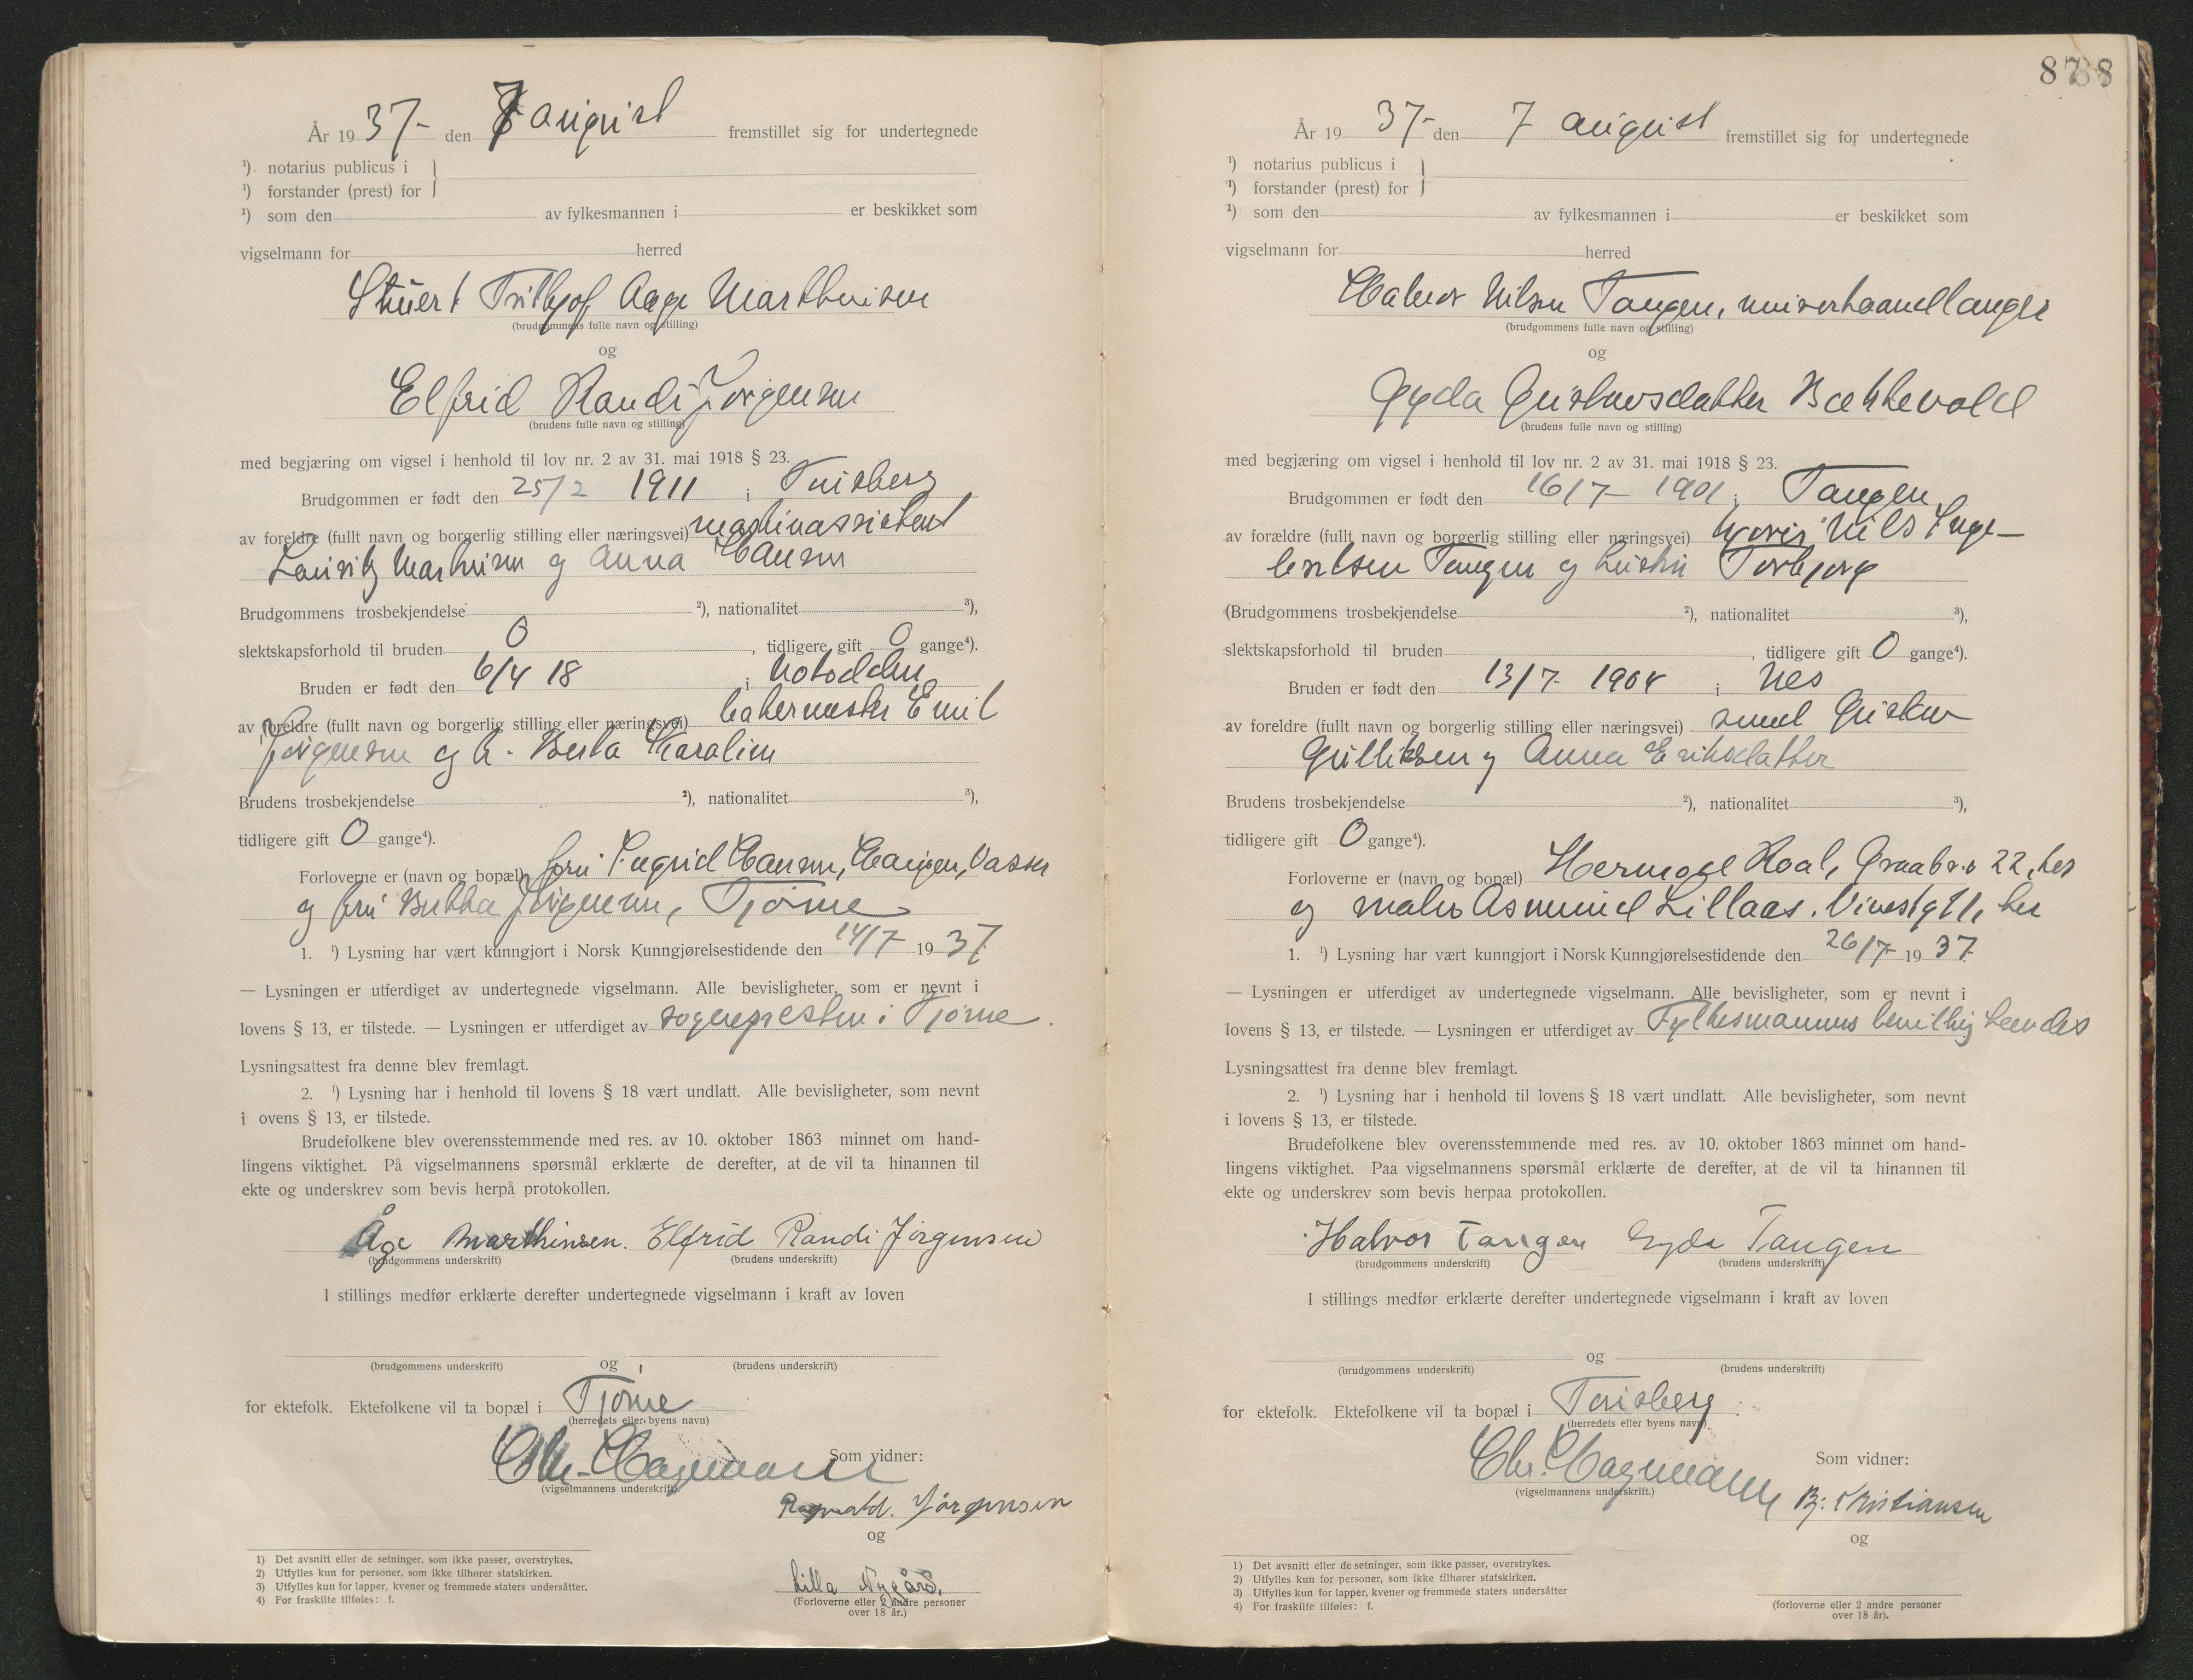 År 1937- den 7 august fremstillet sig for undertegnede
¹) notarius publicus i
¹) forstander (prest) for
¹) som den av fylkesmannen i er beskikket som
vigselmann for herred
Stuert Frithjof Aage Marthinsen
(brudgommens fulle navn og stilling)
og
Elfrid Randi Jørgensen
(brudens fulle navn og stilling)
med begjæring om vigsel i henhold til lov nr. 2 av 31. mai 1918 § 23.
Brudgommen er født den 25/2 1911 i Tønsberg
av foreldre (fullt navn og borgerlig stilling eller næringsvei) maskinassistent
Lauritz Marthinsen og Anna Hansen
Brudgommens trosbekjendelse ²), nationalitet ³),
slektskapsforhold til bruden 0, tidligere gift 0 gange⁴).
Bruden er født den 6/4 18 i Notodden
av foreldre (fullt navn og borgerlig stilling eller næringsvei) bakermester Emil
Jørgensen og h. Berta Karoline
Brudens trosbekjendelse ²), nationalitet ³),
tidligere gift 0 gange⁴).
Forloverne er (navn og bopæl) fru Ingrid Hansen, Haugen, Vasser
og fru Bertha Jørgensen, Tjøme
1. ¹) Lysning har vært kunngjort i Norsk Kunngjørelsestidende den 14/7 1937
— Lysningen er utferdiget av undertegnede vigselmann. Alle bevisligheter, som er nevnt i
lovens § 13, er tilstede. — Lysningen er utferdiget av sognepresten i Tjøme.
Lysningsattest fra denne blev fremlagt.
2. ¹) Lysning har i henhold til lovens § 18 vært undlatt. Alle bevisligheter, som nevnt
i ovens § 13, er tilstede.
Brudefolkene blev overensstemmende med res. av 10. oktober 1863 minnet om hand-
lingens viktighet. På vigselmannens spørsmål erklærte de derefter, at de vil ta hinannen til
ekte og underskrev som bevis herpå protokollen.
Åge Marthinsen. Elfrid Randi Jørgensen
(brudgommens underskrift) (brudens underskrift)
I stillings medfør erklærte derefter undertegnede vigselmann i kraft av loven
og
(brudgommens underskrift) (brudens underskrift)
for ektefolk. Ektefolkene vil ta bopæl i Tjøme
(herredets eller byens navn)
Chr. Hagemann
Som vidner:
(vigselmannens underskrift).
Ragnvald. Jørgensen
og
Lilla Nygård.
(Forloverne eller 2 andre personer
over 18 år.)
1) Det avsnitt eller de setninger, som ikke passer, overstrykes.
2) Utfylles kun for personer, som ikke tilhører statskirken.
3) Utfylles kun for lapper, kvener og fremmede staters undersåtter.
4) For fraskilte tilføies: f.
87 88
År 1937- den 7 august fremstillet sig for undertegnede
¹) notarius publicus i
¹) forstander (prest) for
¹) som den av fylkesmannen i er beskikket som
vigselmann for herred
Halvor Nilsen Tangen, murerhaandlanger
(brudgommens fulle navn og stilling)
og
Gyda Gustavsdatter Bækkevold
(brudens fulle navn og stilling)
med begjæring om vigsel i henhold til lov nr. 2 av 31. mai 1918 § 23.
Brudgommen er født den 16/7- 1901 i Tangen
av forældre (fullt navn og borgerlig stilling eller næringsvei) Nils Inge-
bretsen Tangen og hustru Torbjørg
(Brudgommens trosbekjendelse ²), nationalitet ³),
slektskapsforhold til bruden, tidligere gift 0 gange⁴).
Bruden er født den 13/7- 1904 i Nes
av foreldre (fullt navn og borgerlig stilling eller næringsvei) smed Gustav
Gulliksen og Anna Eriksdatter
Brudens trosbekjendelse ²), nationalitet ³),
tidligere gift 0 gange⁴).
Forloverne er (navn og bopæl) Hermod Roal, 22, her
og maler Asmund Lillaas, her
1. ¹) Lysning har vært kunngjort i Norsk Kunngjørelsestidende den 26/7- 1937.
— Lysningen er utferdiget av undertegnede vigselmann. Alle bevisligheter, som er nevnt i
lovens § 13, er tilstede. — Lysningen er utferdiget av Fylkesmannens
Lysningsattest fra denne blev fremlagt.
2. ¹) Lysning har i henhold til lovens § 18 vært undlatt. Alle bevisligheter, som nevnt
i lovens § 13, er tilstede.
Brudefolkene blev overensstemmende med res. av 10. oktober 1863 minnet om hand-
lingens viktighet. Paa vigselmannens spørsmål erklærte de derefter, at de vil ta hinannen til
ekte og underskrev som bevis herpaa protokollen.
Halvor Tangen Gyda Tangen
(brudgommens underskrift) (brudens underskrift)
I stillings medfør erklærte derefter undertegnede vigselmann i kraft av loven
og
(brudgommens underskrift) (brudens underskrift)
for ektefolk. Ektefolkene vil ta bopæl i Tønsberg.
(herredets eller byens navn).
Chr. Hagemann
Som vidner:
(vigselmannens underskrift.)
Bj. Kristiansen
og
(forloverne eller 2 andre personer
over 18 år).
1) Det avsnitt eller de setninger, som ikke passer, overstrykes.
2) Utfylles kun for personer, som ikke tilhører statskirken.
3) Utfylles kun for lapper, kvener og fremmede staters undersåtter
4) For fraskilte tilføies: f.